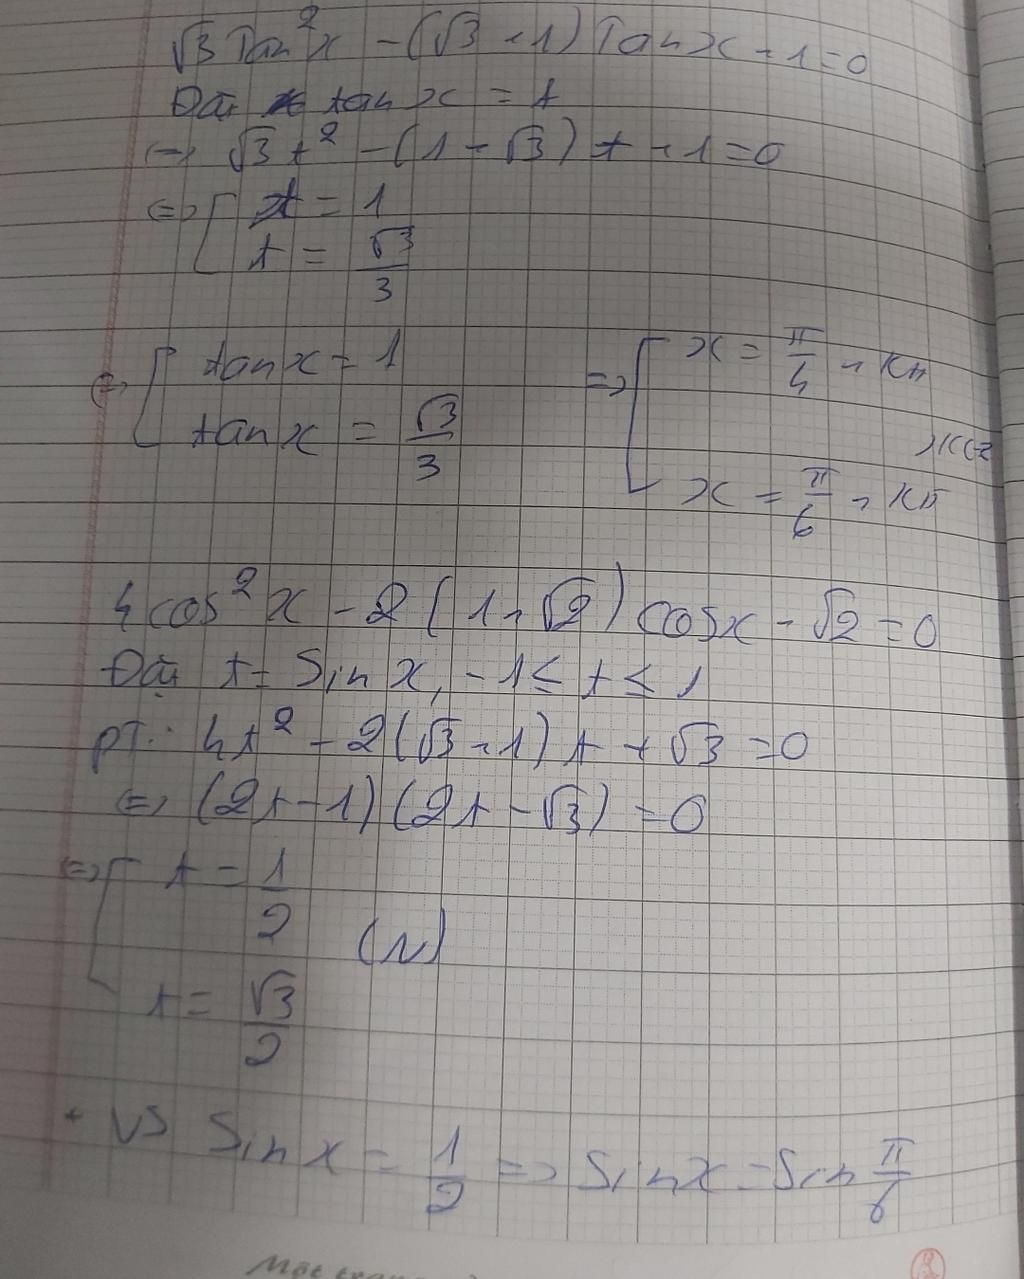 √3 Tan²x - (√3 + 1) Tan x + 1 = 0
Đặt tan x = t
⇔ √3 t² - (1 + √3) t + 1 = 0
⇔ [ t = 1
t = √3/3
⇔ [ tan x = 1 ⇒ [ x = π/4 + kπ
k∈Z
tan x = √3/3 x = π/6 + kπ
4cos²x - 2(1 + √2) cos x + √2 = 0
Đặt t = Sin x, -1 ≤ t ≤ 1
PT: 4t² - 2(√3 + 1) t + √3 = 0
⇔ (2t - 1)(2t - √3) = 0
⇔ [ t = 1/2
(N)
t = √3/2
+ Vs Sin x = 1/2 ⇒ Sin x = Sin π/6